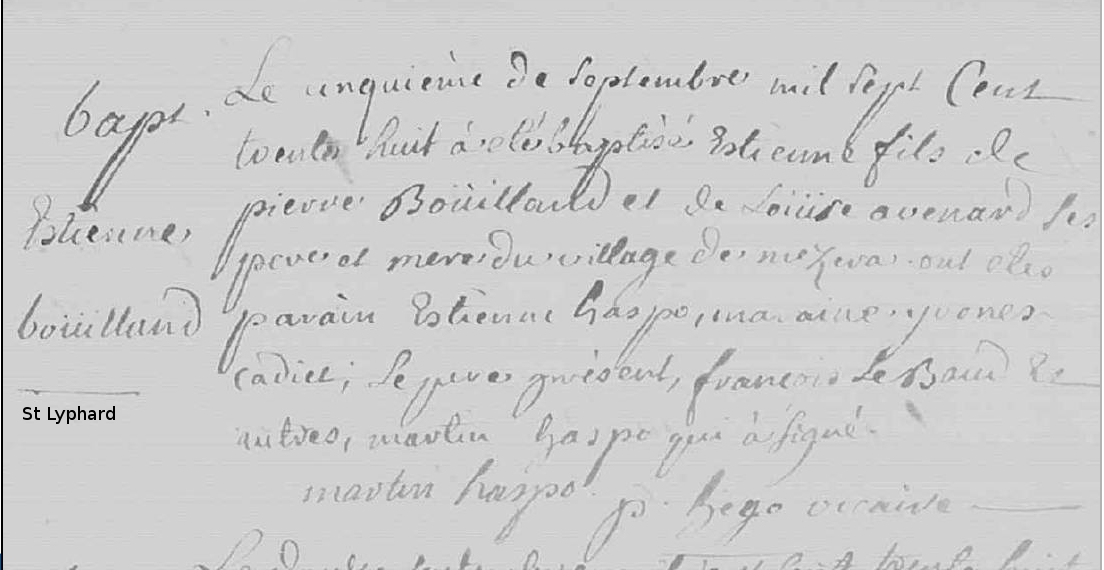 bapt.
Estienne
boüilland
St Lyphard
Le cinquieme de Septembre mil Sept Cent
trente huit à eté baptisé Estienne fils de
pierre Boüilland et de Loüise avenard Ses
pere et mere du village de mezera ont etes
parain Estienne haspo, maraine yvones
cadiet; le pere présent, françois Le Baud Et
autres, martin haspo qui à Signé.
martin haspo
p. hego vicaire